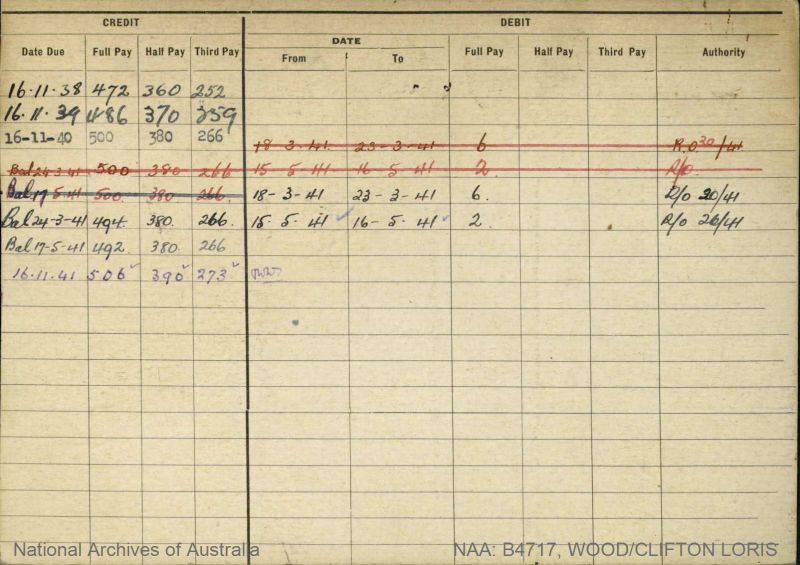 CREDIT DEBIT
Date Due Full Pay Half Pay Third Pay DATE From To Full Pay Half Pay Third Pay Authority
16.11.38 472 360 252
16.11.39 486 370 259
16-11-40 500 380 266
18-3-41. 23-3-41 6 R.O 20/41
Bal 24-3-41 500 380 266 15-5-41 16-5-41 2 R/o.
Bal 17-5-41 500. 380 266. 18-3-41 23-3-41 6. R/o 20/41
Bal 24-3-41 494. 380. 266. 15.5.41 16-5.41 2. R/o 26/41
Bal 17-5-41 492. 380. 266
16.11.41 506 390 273
National Archives of Australia NAA: B4717, WOOD/CLIFTON LORIS